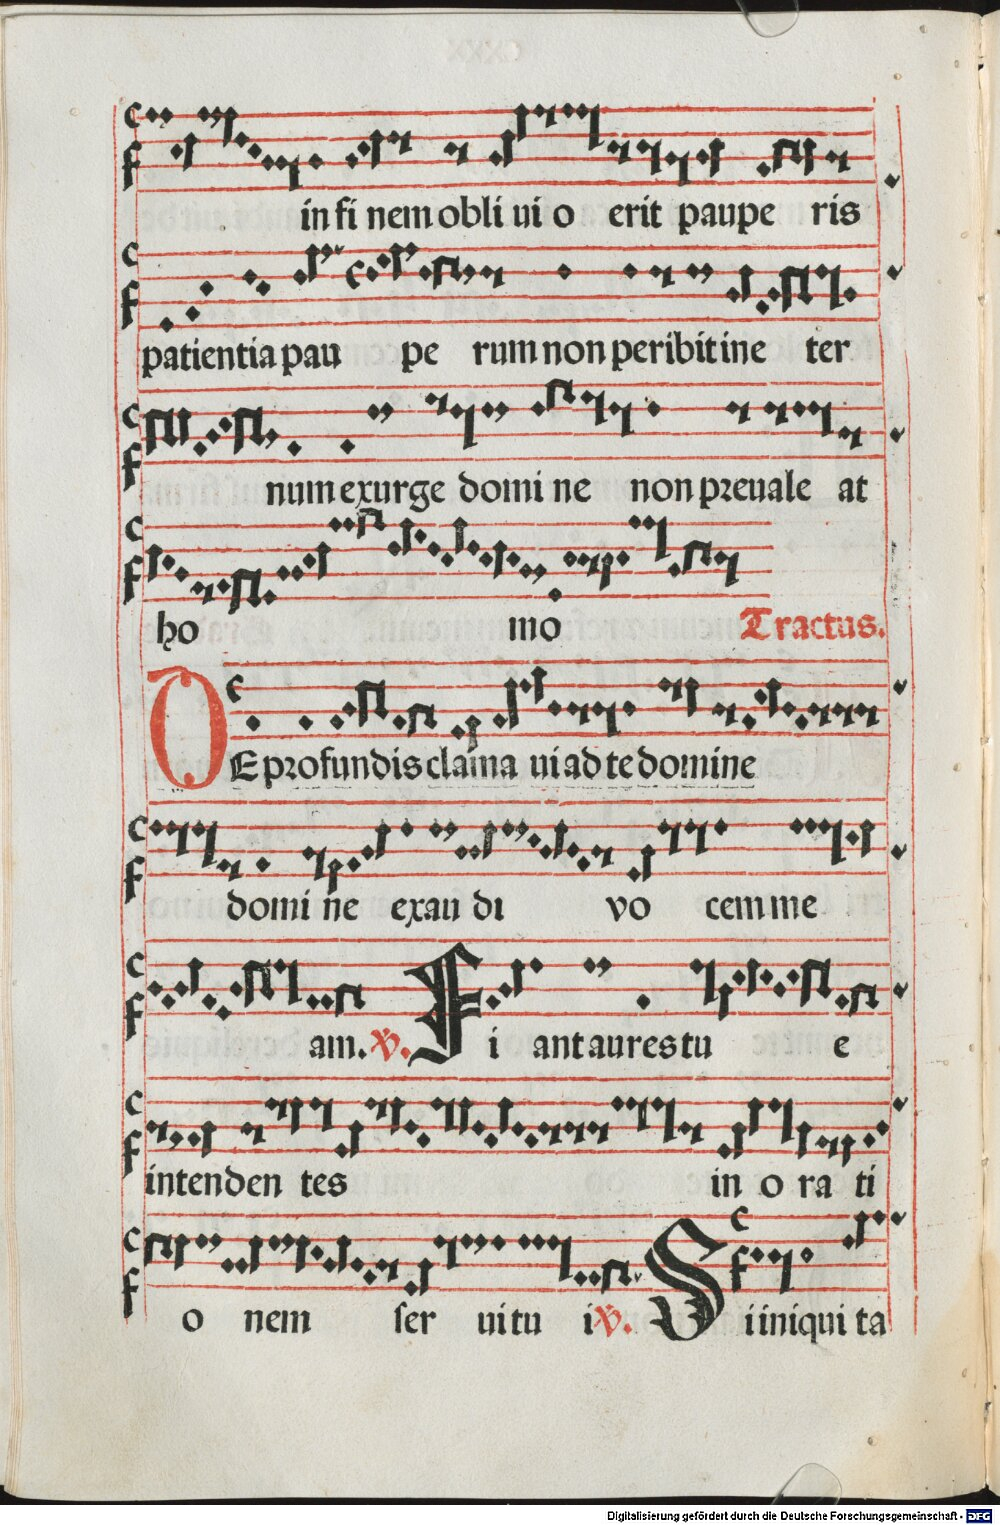 in fi nem obli ui o erit paupe ris
patientia pau pe rum non peribit in e ter
num exurge domi ne non preuale at
ho mo Tractus.
DE profundis clama ui ad te domine
domi ne exau di vo cem me
am. V. Fi ant aures tu e
intenden tes in o ra ti
o nem ser ui tu i V. Si iniqui ta
Digitalisierung gefördert durch die Deutsche Forschungsgemeinschaft - DFG